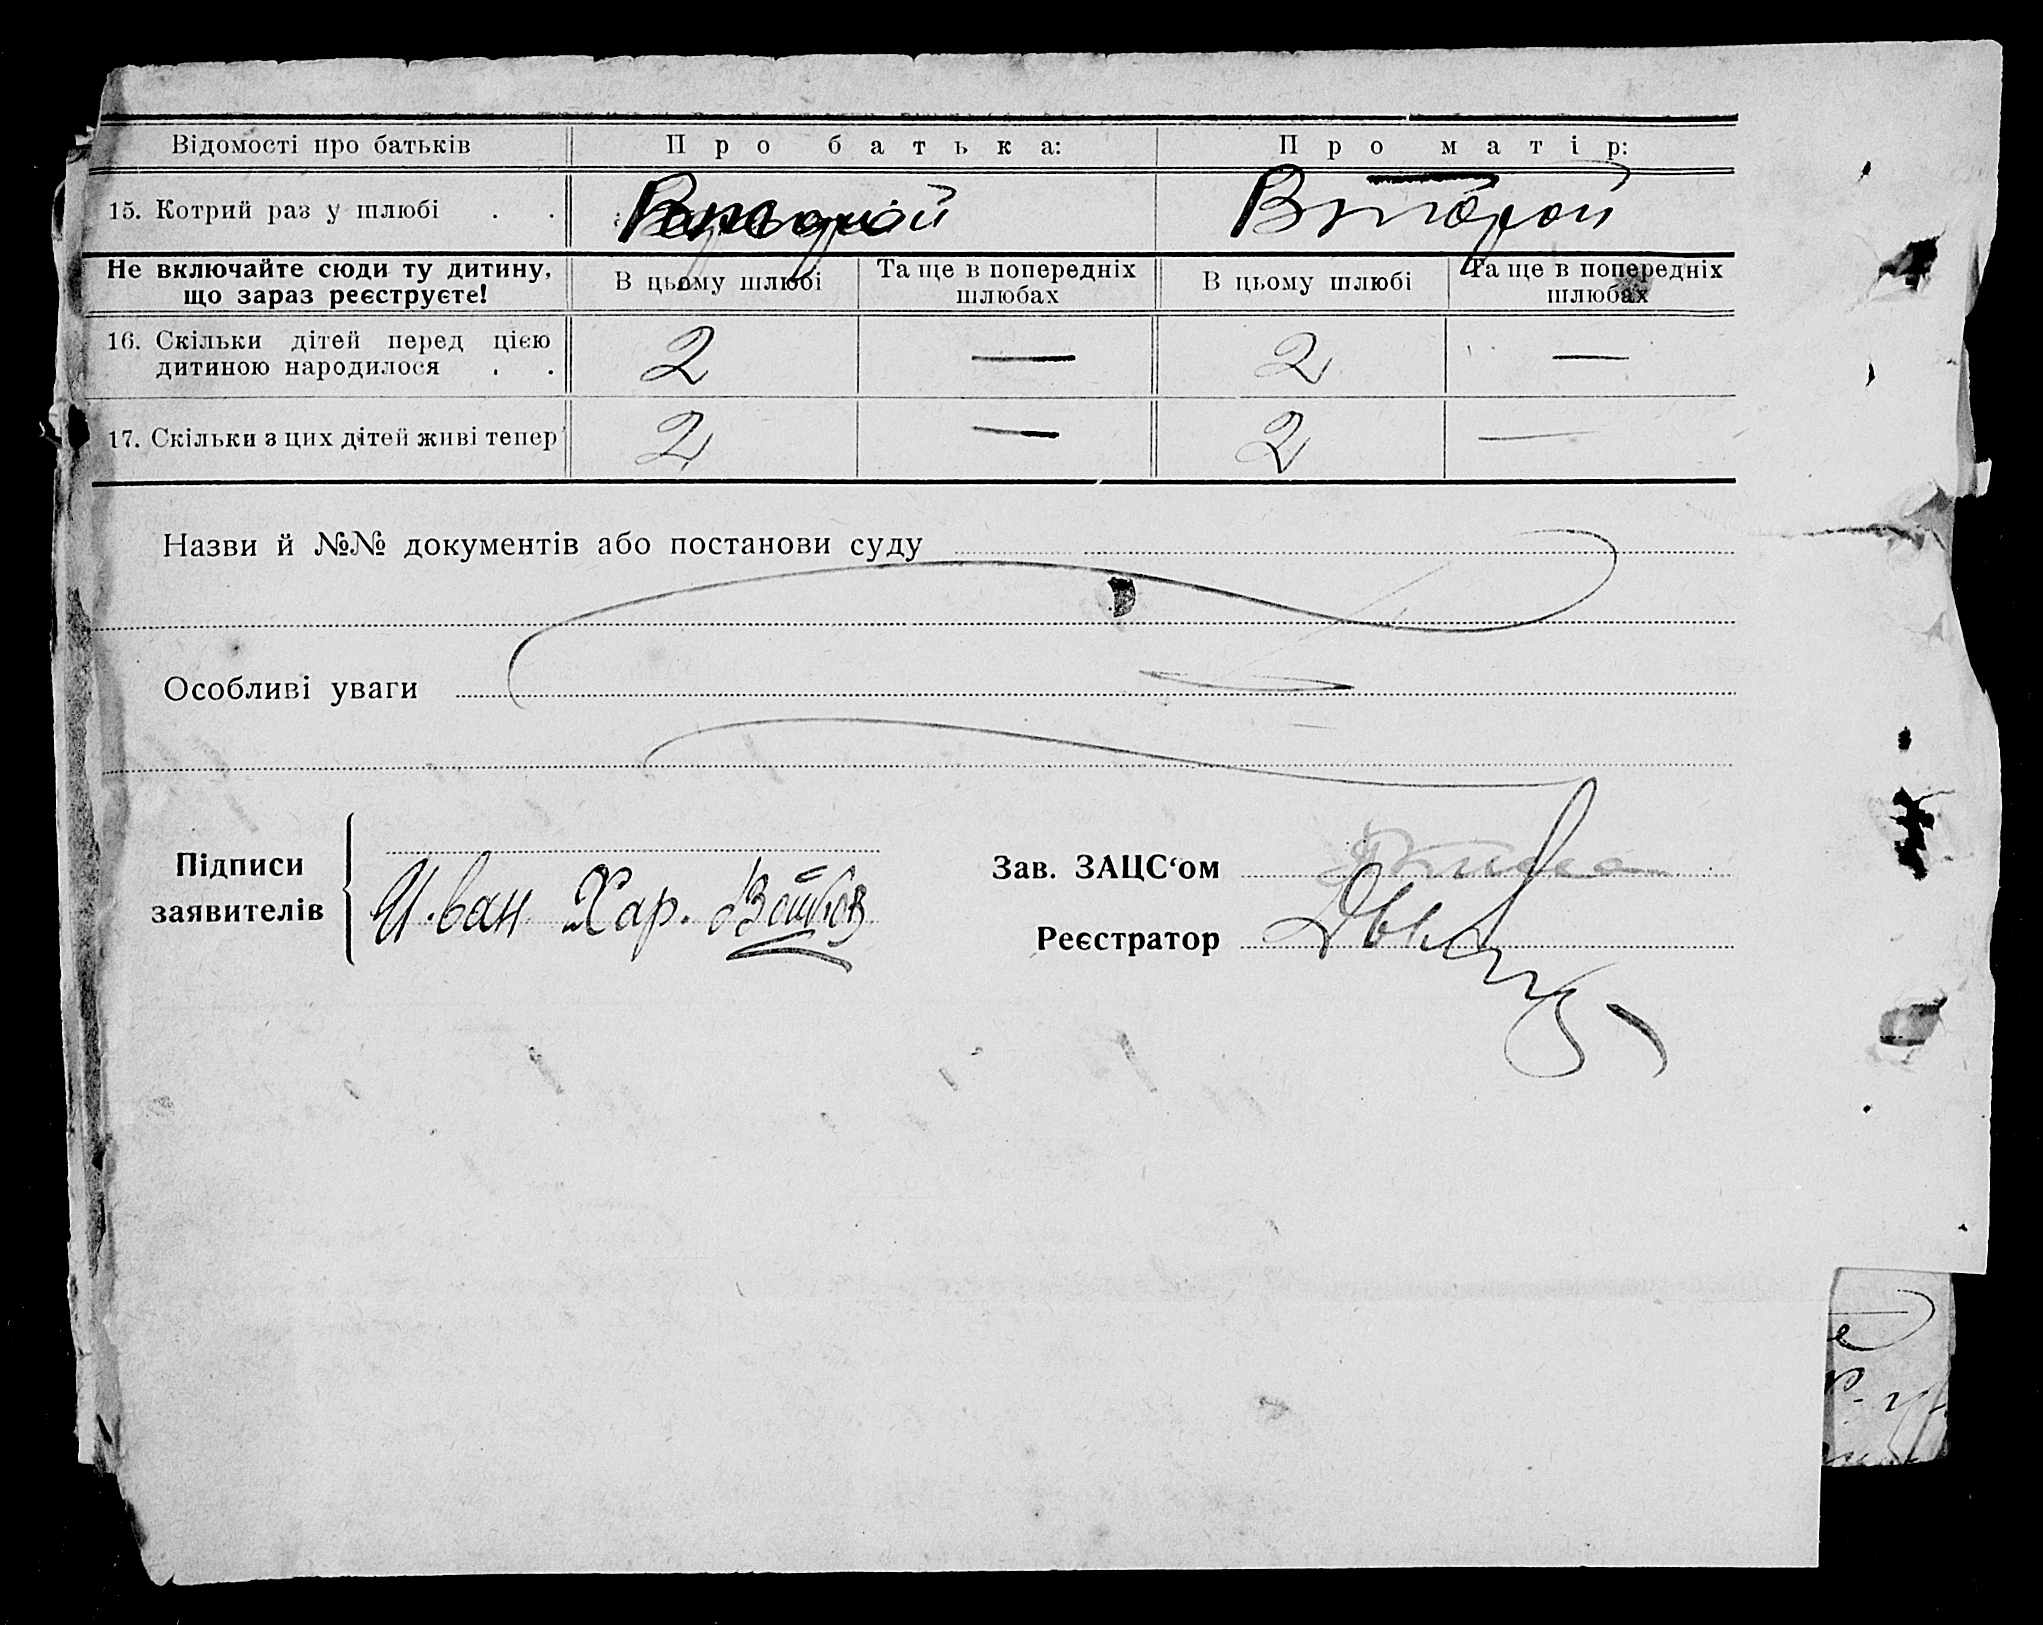 Відомості про батьків Про батька: Про матір:
15. Котрий раз у шлюбі . . Второй Второй
Не включайте сюди ту дитину, що зараз реєструєте! В цьому шлюбі Та ще в попередніх шлюбах В цьому шлюбі Та ще в попередніх шлюбах
16. Скільки дітей перед цією
дитиною народилося . . 2 — 2 —
17. Скільки з цих дітей живі тепер 2 — 2 —
Назви й №№ документів або постанови суду
Особливі уваги
Підписи
заявителів
Иван Хар.
Зав. ЗАЦС‘ом
Реєстратор